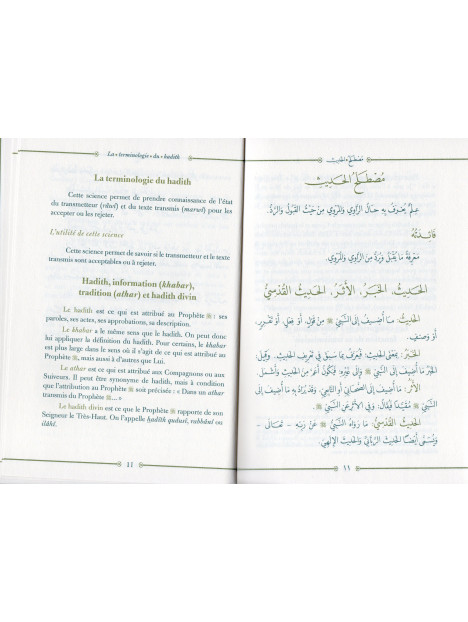 La • terminologie • du • hadith
La terminologie du hadith
Cette science permet de prendre connaissance de l'état
du transmetteur (râwî) et du texte transmis (marwî) pour les
accepter ou les rejeter.
L'utilité de cette science
Cette science permet de savoir si le transmetteur et le texte
transmis sont acceptables ou à rejeter.
Hadith, information (khabar),
tradition (athar) et hadith divin
Le hadith est ce qui est attribué au Prophète ﷺ : ses
paroles, ses actes, ses approbations, sa description.
Le khabar a le même sens que le hadith. On peut donc
lui appliquer la définition du hadith. Pour certains, le khabar
est plus large dans le sens où il s'agit de ce qui est attribué au
Prophète ﷺ, mais aussi à d'autres que Lui.
Le athar est ce qui est attribué aux Compagnons ou aux
Suiveurs. Il peut être synonyme de hadith, mais à condition
que l'attribution au Prophète ﷺ soit précisée : « Dans un athar
transmis du Prophète ﷺ... »
Le hadith divin est ce que le Prophète ﷺ rapporte de son
Seigneur le Très-Haut. On l'appelle hadîth qudusî, rabbânî ou
ilâhî.
11
مُصْطَلَحُ الحَدِيثِ
مُصْطَلَحُ الحَدِيثِ
عِلْمٌ يُعْرَفُ بِهِ حَالُ الرَّاوِي وَالمَرْوِيِّ مِنْ حَيْثُ القَبُولُ وَالرَّدُّ.
فَائِدَتُهُ
مَعْرِفَةُ مَا يُقْبَلُ وَيُرَدُّ مِنَ الرَّاوِي وَالمَرْوِيِّ.
الحَدِيثُ، الخَبَرُ، الأَثَرُ، الحَدِيثُ القُدْسِيُّ
الحَدِيثُ: مَا أُضِيفَ إِلَى النَّبِيِّ ﷺ مِنْ قَوْلٍ، أَوْ فِعْلٍ، أَوْ تَقْرِيرٍ،
أَوْ وَصْفٍ.
الخَبَرُ: بِمَعْنَى الحَدِيثِ؛ فَيُعَرَّفُ بِمَا سَبَقَ فِي تَعْرِيفِ الحَدِيثِ. وَقِيلَ
الخَبَرُ مَا أُضِيفَ إِلَى النَّبِيِّ ﷺ وَإِلَى غَيْرِهِ؛ فَيَكُونُ أَعَمَّ مِنَ الحَدِيثِ وَأَشْمَلَ.
الأَثَرُ: مَا أُضِيفَ إِلَى الصَّحَابِيِّ أَوِ التَّابِعِيِّ، وَقَدْ يُرَادُ بِهِ مَا أُضِيفَ إِلَى
النَّبِيِّ ﷺ مُقَيَّدًا فَيُقَالُ: وَفِي الأَثَرِ عَنِ النَّبِيِّ ﷺ.
الحَدِيثُ القُدْسِيُّ: مَا رَوَاهُ النَّبِيُّ ﷺ عَنْ رَبِّهِ - تَعَالَى -
وَيُسَمَّى أَيْضًا الحَدِيثَ الرَّبَّانِيَّ وَالحَدِيثَ الإِلَهِيَّ.
١١